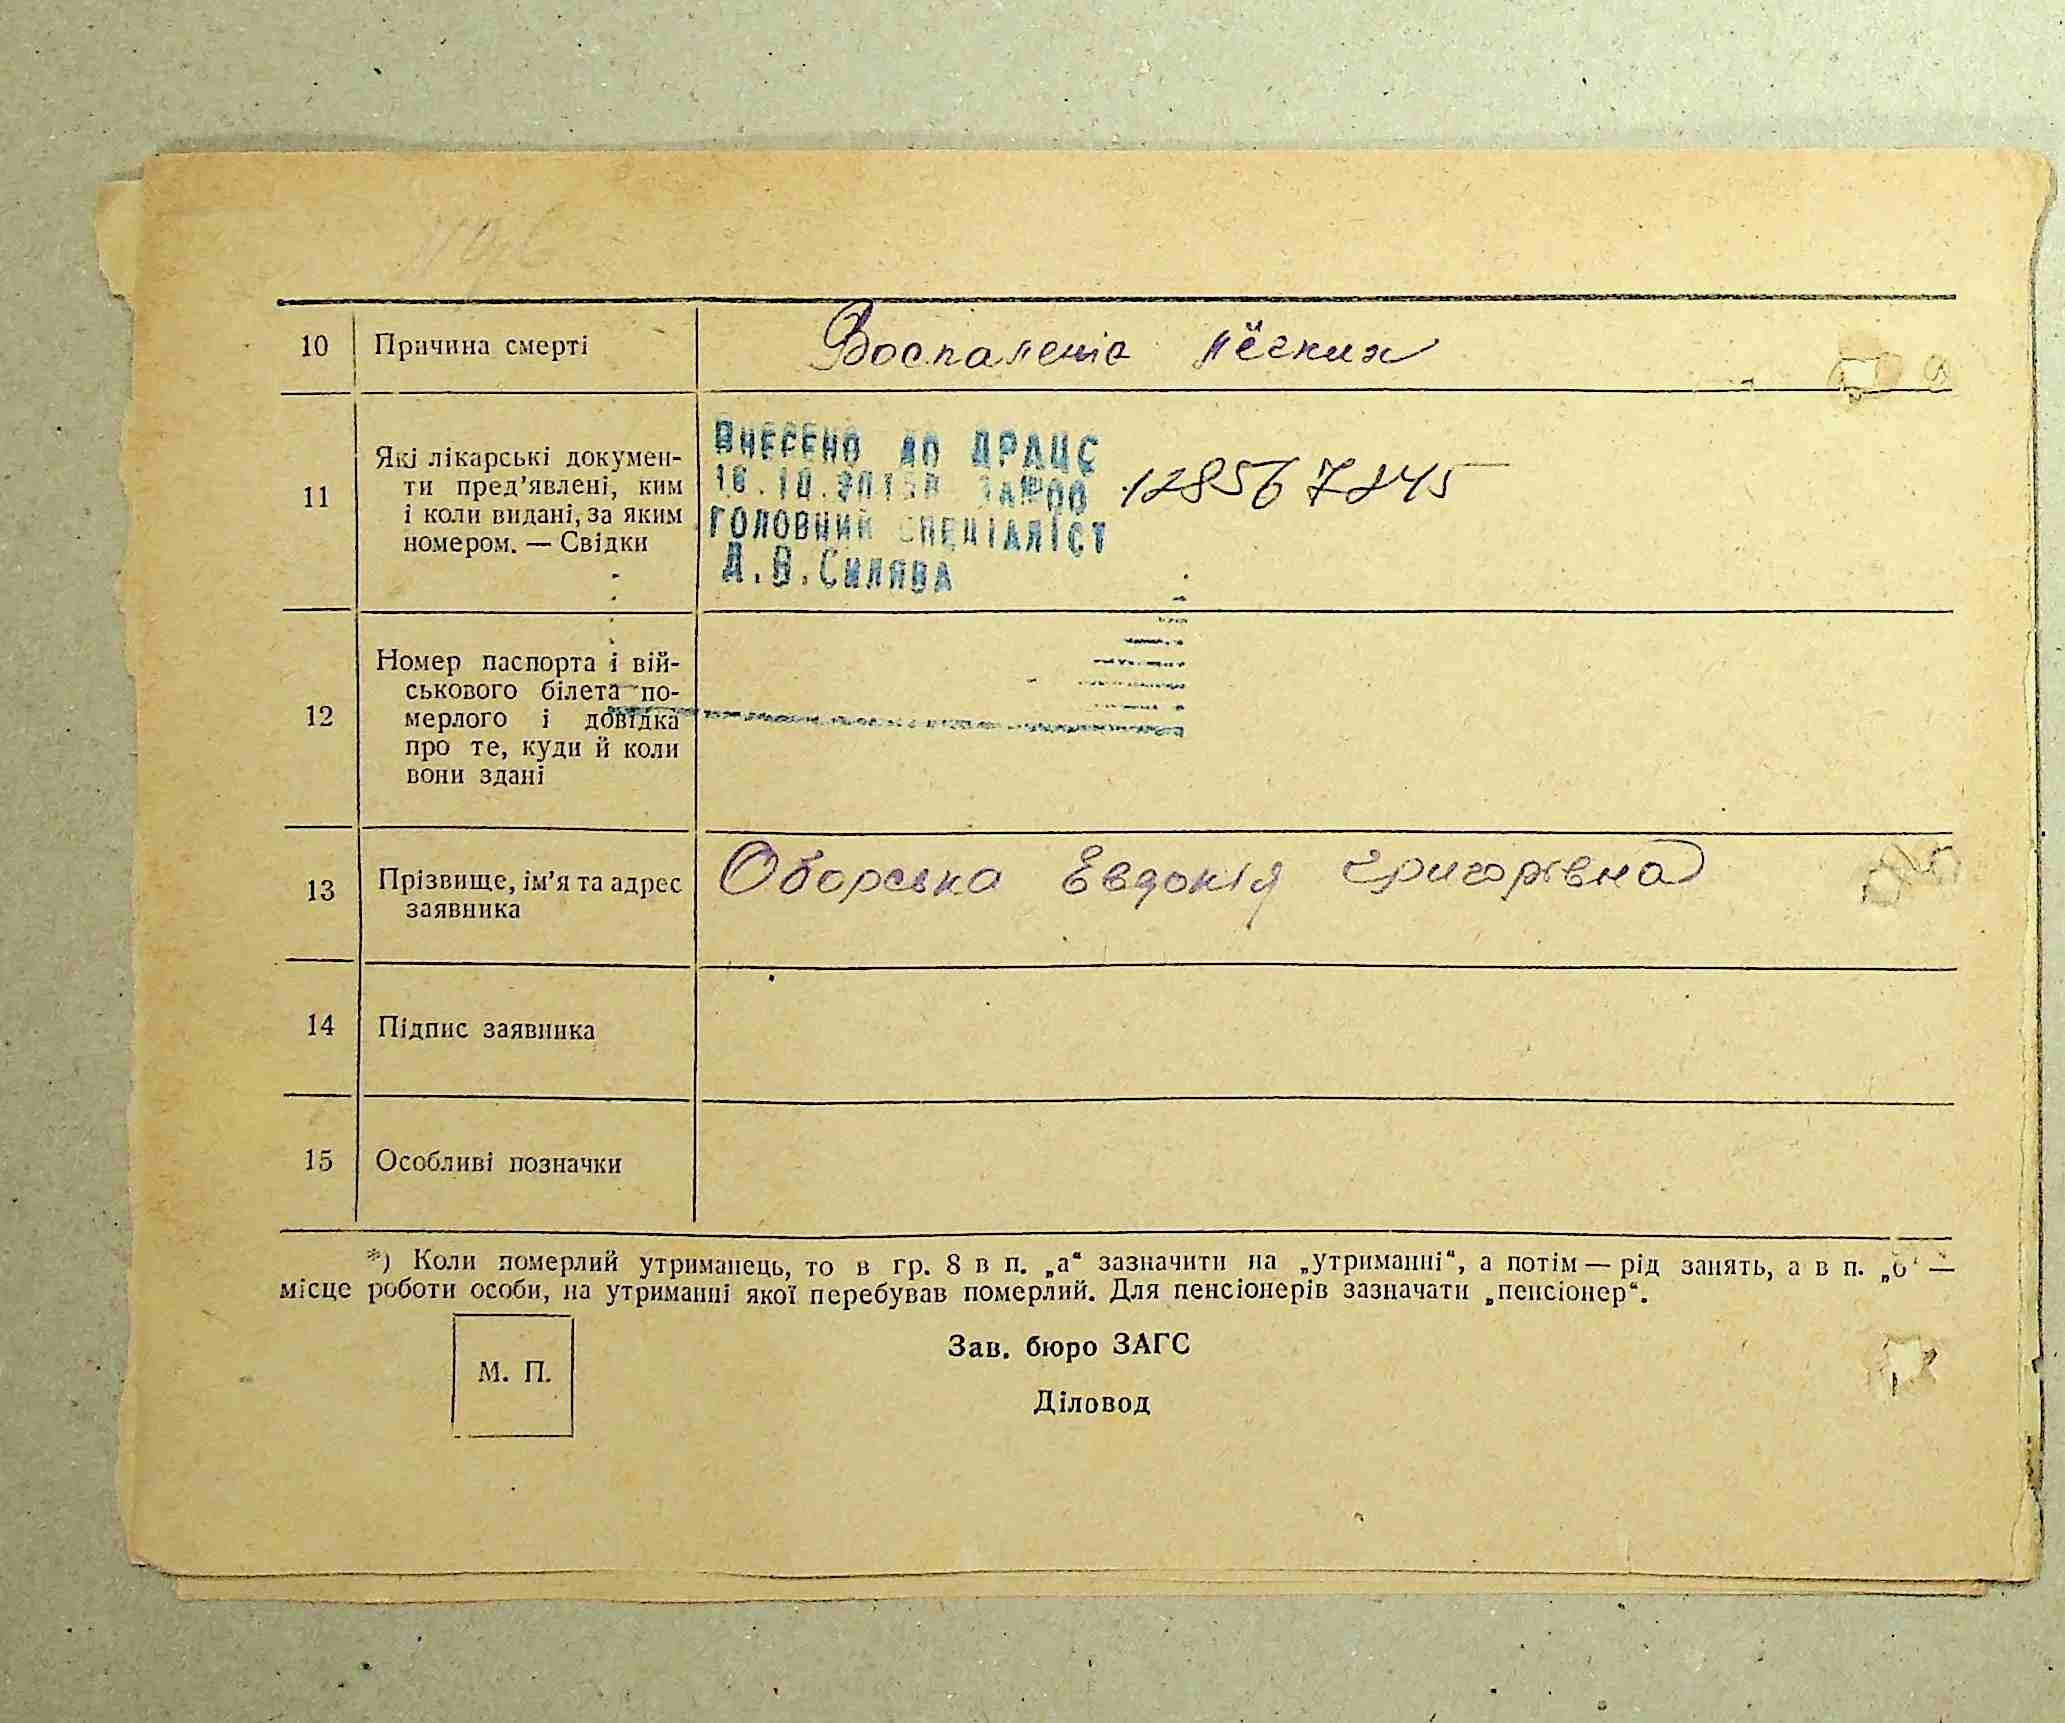 10 Причина смерті Воспаленіе лёгких
11 Які лікарські докумен-
ти пред'явлені, ким
і коли видані, за яким
номером. — Свідки
ВНЕСЕНО ДО ДРАЦС
ЗА №00 128567245
ГОЛОВНИЙ СПЕЦІАЛІСТ
Д.В.СИЛЯВА
12 Номер паспорта і вій-
ськового білета по-
мерлого і довідка
про те, куди й коли
вони здані
13 Прізвище, ім'я та адрес
заявника
Оборська Евдокія Григорівна
14 Підпис заявника
15 Особливі позначки
*) Коли померлий утриманець, то в гр. 8 в п. „а“ зазначити на „утриманні“, а потім — рід занять, а в п. „б“ —
місце роботи особи, на утриманні якої перебував померлий. Для пенсіонерів зазначати „пенсіонер“.
М. П.
Зав. бюро ЗАГС
Діловод